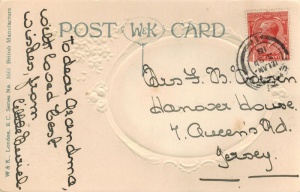 POST W&K CARD
W & K., London, E.C. Series No. British Manufacture
to dear Grandma,
with loved best
wishes, from
little Muriel
Mrs
Hanover House
7 Queens Rd.
Jersey.